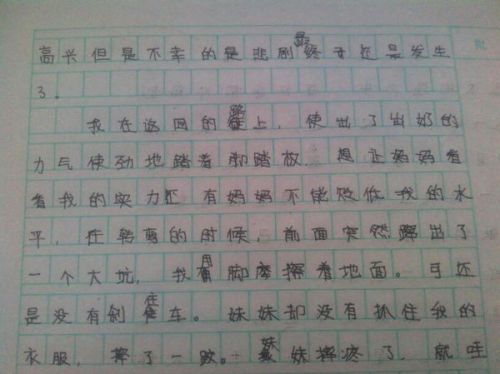 高兴但是不幸的是悲剧终于还是发生
了。
我在返回的路上，使出了出奶的
力气使劲地踏着脚踏板，想让妈妈看
看我的实力还有妈妈不能贬低我的水
平，在转弯的时候，前面突然蹿出了
一个大坑，我用脚摩擦着地面。可还
是没有刹住车。妹妹却没有抓住我的
衣服，摔了一跤。妹妹摔疼了，就哇